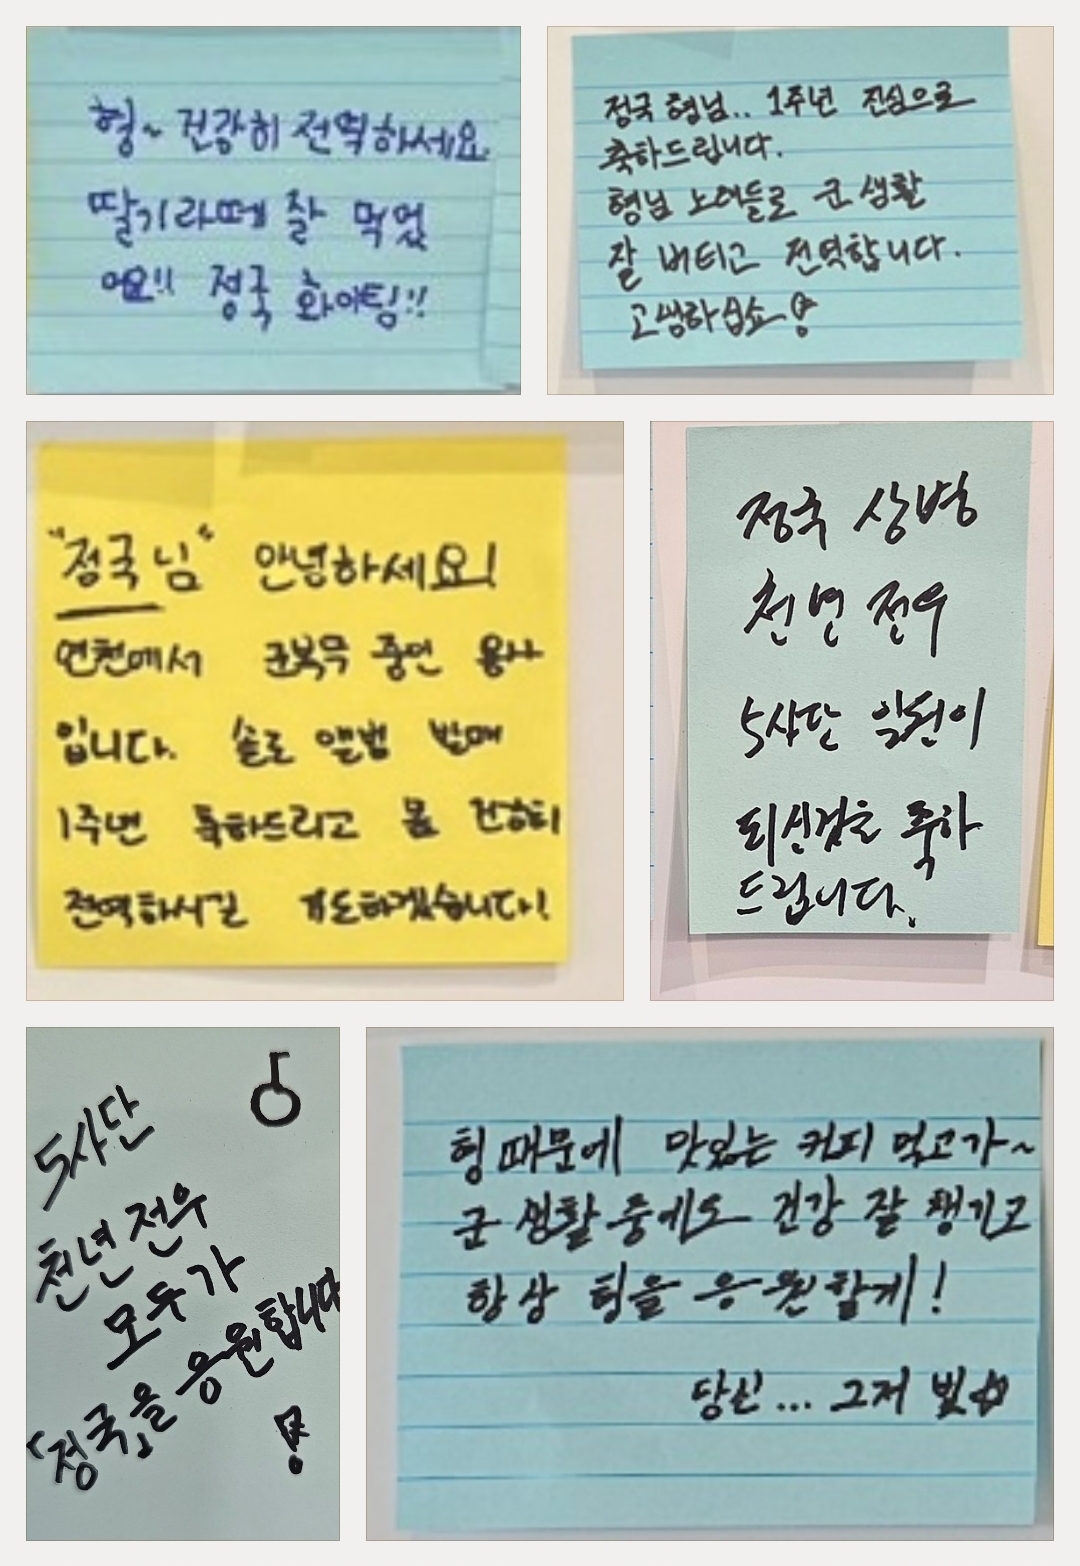 형~ 건강히 전역하세요.
딸기라떼 잘 먹었
어요!! 정국 화이팅!!
정국 형님.. 1주년 진심으로
축하드립니다.
형님 노래들로 군생활
잘 버티고 전역합니다.
고생하십쇼
"정국님" 안녕하세요!
연천에서 군복무 중인 용사
입니다. 솔로 앨범 발매
1주년 축하드리고 몸 건강히
전역하시길 기도하겠습니다!
정국 상병
천년 전우
5사단 일원이
되신걸을 축하
드립니다.
5사단
천년 전우
모두가
「정국」을 응원합니다
!
형 때문에 맛있는 커피 먹고가~
군 생활 중에도 건강 잘 챙기고
항상 형을 응원할게!
당신... 그저 빛☆